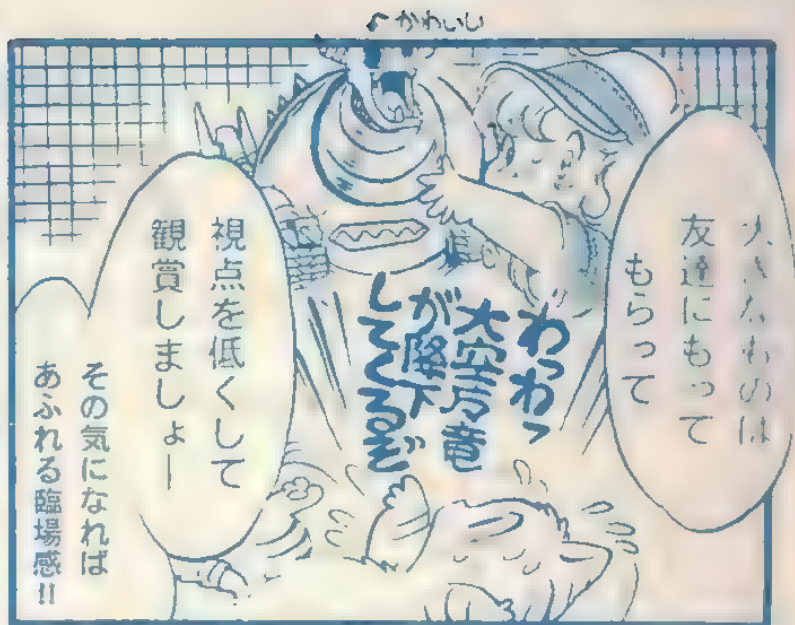 ♪かわいい
大きなものは
友達にもって
もらって
わっわっ
大空弓竜
が降下
してくるぞ
視点を低くして
観賞しましょー
その気になれば
あふれる臨場感!!